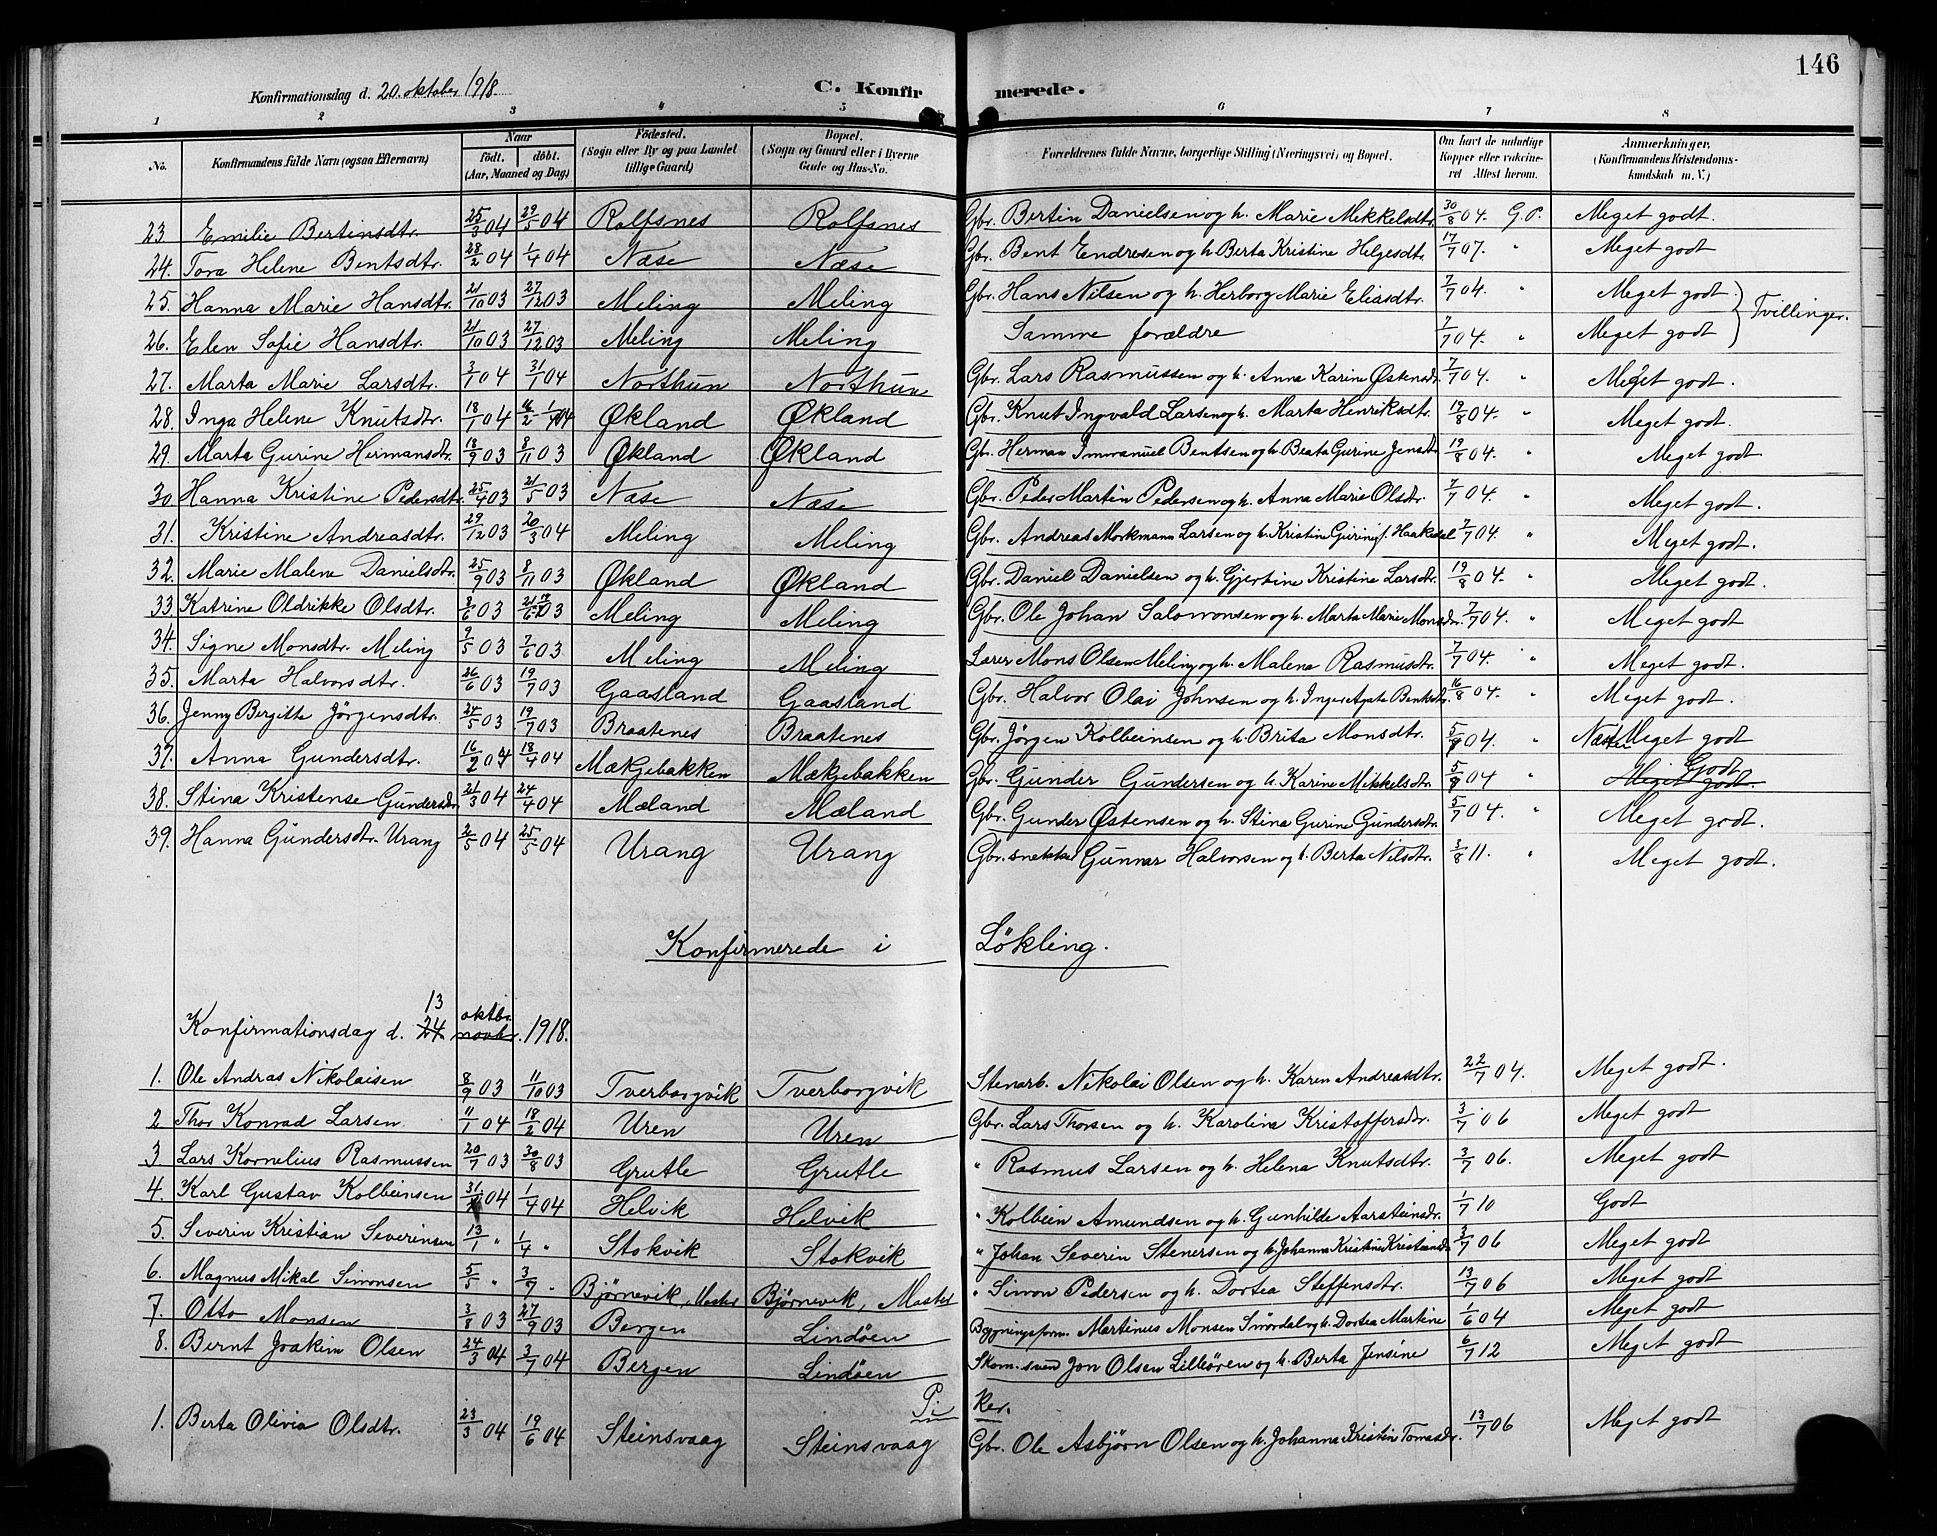 146
Konfirmationsdag d. 20. oktober 1918. C. Konfirmerede.
1 2 3 4 5 6 7 8
No. Konfirmandens fulde Navn (ogsaa Efternavn) Naar födt. döbt. (Aar, Maaned og Dag) Födested. (Sogn eller By og paa Landet tillige Gaard) Bopæl. (Sogn og Gaard eller i Byerne Gade og Hus-No. Forældrenes fulde Navne, borgerlige Stilling (Næringsvei) og Bopæl. Om havt de naturlige Kopper eller vaccineret Attest herom. Anmerkninger. (Konfirmandens Kristendomskundskab m. V.)
23 Emilie Bertinsdtr. 25/3 04 29/5 04 Rolfsnes Rolfsnes Gbr. Bertin Danielsen og h. Marie Mikkelsdtr. 30/8 04. G.P. Meget godt.
24. Tora Helene Bentsdtr. 28/2 04 1/4 04 Næse Næse Gbr. Bent Endresen og h. Berta Kristine Helgesdtr. 17/7 07. " Meget godt
25. Hanna Marie Hansdtr. 21/10 03 27/12 03 Meling Meling Gbr. Hans Nilsen og h. Herborg Marie Eliasdtr. 7/7 04. " Meget godt. } Tvillinger.
26. Elen Sofie Hansdtr. 21/10 03 27/12 03 Meling Meling Samme forældre 7/7 04. " Meget godt
27. Marta Marie Larsdtr. 3/1 04 31/1 04 Northun Northun Gbr. Lars Rasmussen og h. Anna Karine Østensdr. 7/7 04. " Meget godt.
28. Inga Helene Knutsdtr. 18/1 04 16/2 - 1/4 04 Økland Økland Gbr. Knut Ingvald Larsen og h. Marta Henriksdtr. 19/8 04. " Meget godt.
29. Marta Gurine Hermansdtr. 18/9 03 8/11 03 Økland Økland Gbr. Herman Immanuel Bentsen og h. Beata Gurine Jensdtr. 19/8 04. " Meget godt
30. Hanna Kristine Pedersdtr. 25/4 03 21/5 03 Næse Næse Gbr. Peder Martin Pedersen og h. Anna Marie Olsdtr. 7/7 04. " Meget godt.
31. Kristine Andreasdtr. 29/12 03 20/3 04 Meling Meling Gbr. Andreas Morkmann Larsen og h. Kristine Gurine f. Haakedal 7/7 04. " Meget godt.
32. Marie Malene Danielsdtr. 25/9 03 8/11 03 Økland Økland Gbr. Daniel Danielsen og h. Gjertine Kristine Larsdtr. 19/8 04. " Meget godt.
33. Katrine Oldrikke Olsdtr. 8/6 03 21/6 03 Meling Meling Gbr. Ole Johan Salomonsen og h. Marta Marie Monsdr. 7/7 04. " Meget godt
34. Signe Monsdtr. Meling 9/5 03 7/6 03 Meling Meling Lærer Mons Olsen Meling og h. Malena Rasmusdtr. 7/7 04. " Meget godt.
35. Marta Halvorsdtr. 26/6 03 19/7 03 Gaasland Gaasland Gbr. Halvor Olai Johnsen og h. Inger Agate Bentsdtr. 16/8 04. " Meget godt.
36. Jenny Bergitte Jörgensdtr. 24/5 03. 19/7 03 Braatenes Braatenes Gbr. Jørgen Kolbeinsen og h. Brita Monsdtr. 5/7 04. " Næsten Meget godt
37. Anna Gundersdtr. 16/2 04 18/4 04 Mækjebakken Mækjebakken Gbr. Gunder Gundersen og h. Karine Mikkelsdtr. 5/8 04 " Godt Meget godt.
38. Stina Kristense Gundersdr 21/3 04 24/4 04 Mæland Mæland Gbr. Gunder Østensen og h. Stina Gurine Gundersdtr. 5/7 04. " Meget godt.
39. Hanna Gundersdtr. Urang 2/5 04 25/5 04 Urang Urang Gbr. snekker Gunnar Halvorsen og h. Berta Nilsdtr. 3/8 11. " Meget godt.
Konfirmerede i Lökling.
13 oktbr.
Konfirmationsdag d. 24. novbr. 1918.
1. Ole Andras Nikolaisen 8/9 03 11/10 03 Tverborgvik Tverborgvik Stenarb. Nikolai Olsen og h. Karen Andreasdtr. 22/7 04. Meget godt.
2 Thor Konrad Larsen 11/1 04 18/2 04 Uren Uren Gbr. Lars Thorsen og h. Karolina Kristoffersdr. 3/7 06 Meget godt
3. Lars Kornelius Rasmussen 20/7 03 30/8 03 Grutle Grutle " Rasmus Larsen og h. Helena Knutsdtr. 3/7 06. Meget godt
4. Karl Gustav Kolbeinsen 31/1 04 1/4 04 Helvik Helvik " Kolbein Amundsen og h. Gunhilde Aarsteinsdr. 1/7 10 Godt
5. Severin Kristian Severinsen 13/1 " 1/4 " Stokvik Stokvik " Johan Severin Stenersen og h. Johanna Kristine Kristiansdr 3/7 06 Meget godt
6. Magnus Mikal Simonsen 5/5 " 3/7 " Bjørnevik, Moster Bjørnevik, Moster " Simon Pedersen og h. Dortea Steffensdtr. 13/7 06 Meget godt
7. Otto Monsen 3/8 03 27/9 03 Bergen Lindöen Bygningsform. Martinus Monsen Smørdal og h. Dortea Martine 1/6 04 Meget godt
8. Bernt Joakim Olsen 24/3 04 3/7 04 Bergen Lindöen Skom. sven Jon Olsen Lilleören og h. Berta Jensine 6/7 12 Meget godt
Piker.
1. Berta Olivia Olsdtr. 23/3 04 19/6 04 Steinsvaag Steinsvaag Gbr. Ole Asbjörn Olsen og h. Johanna Kristine Tomasdr. 13/7 06 Meget godt